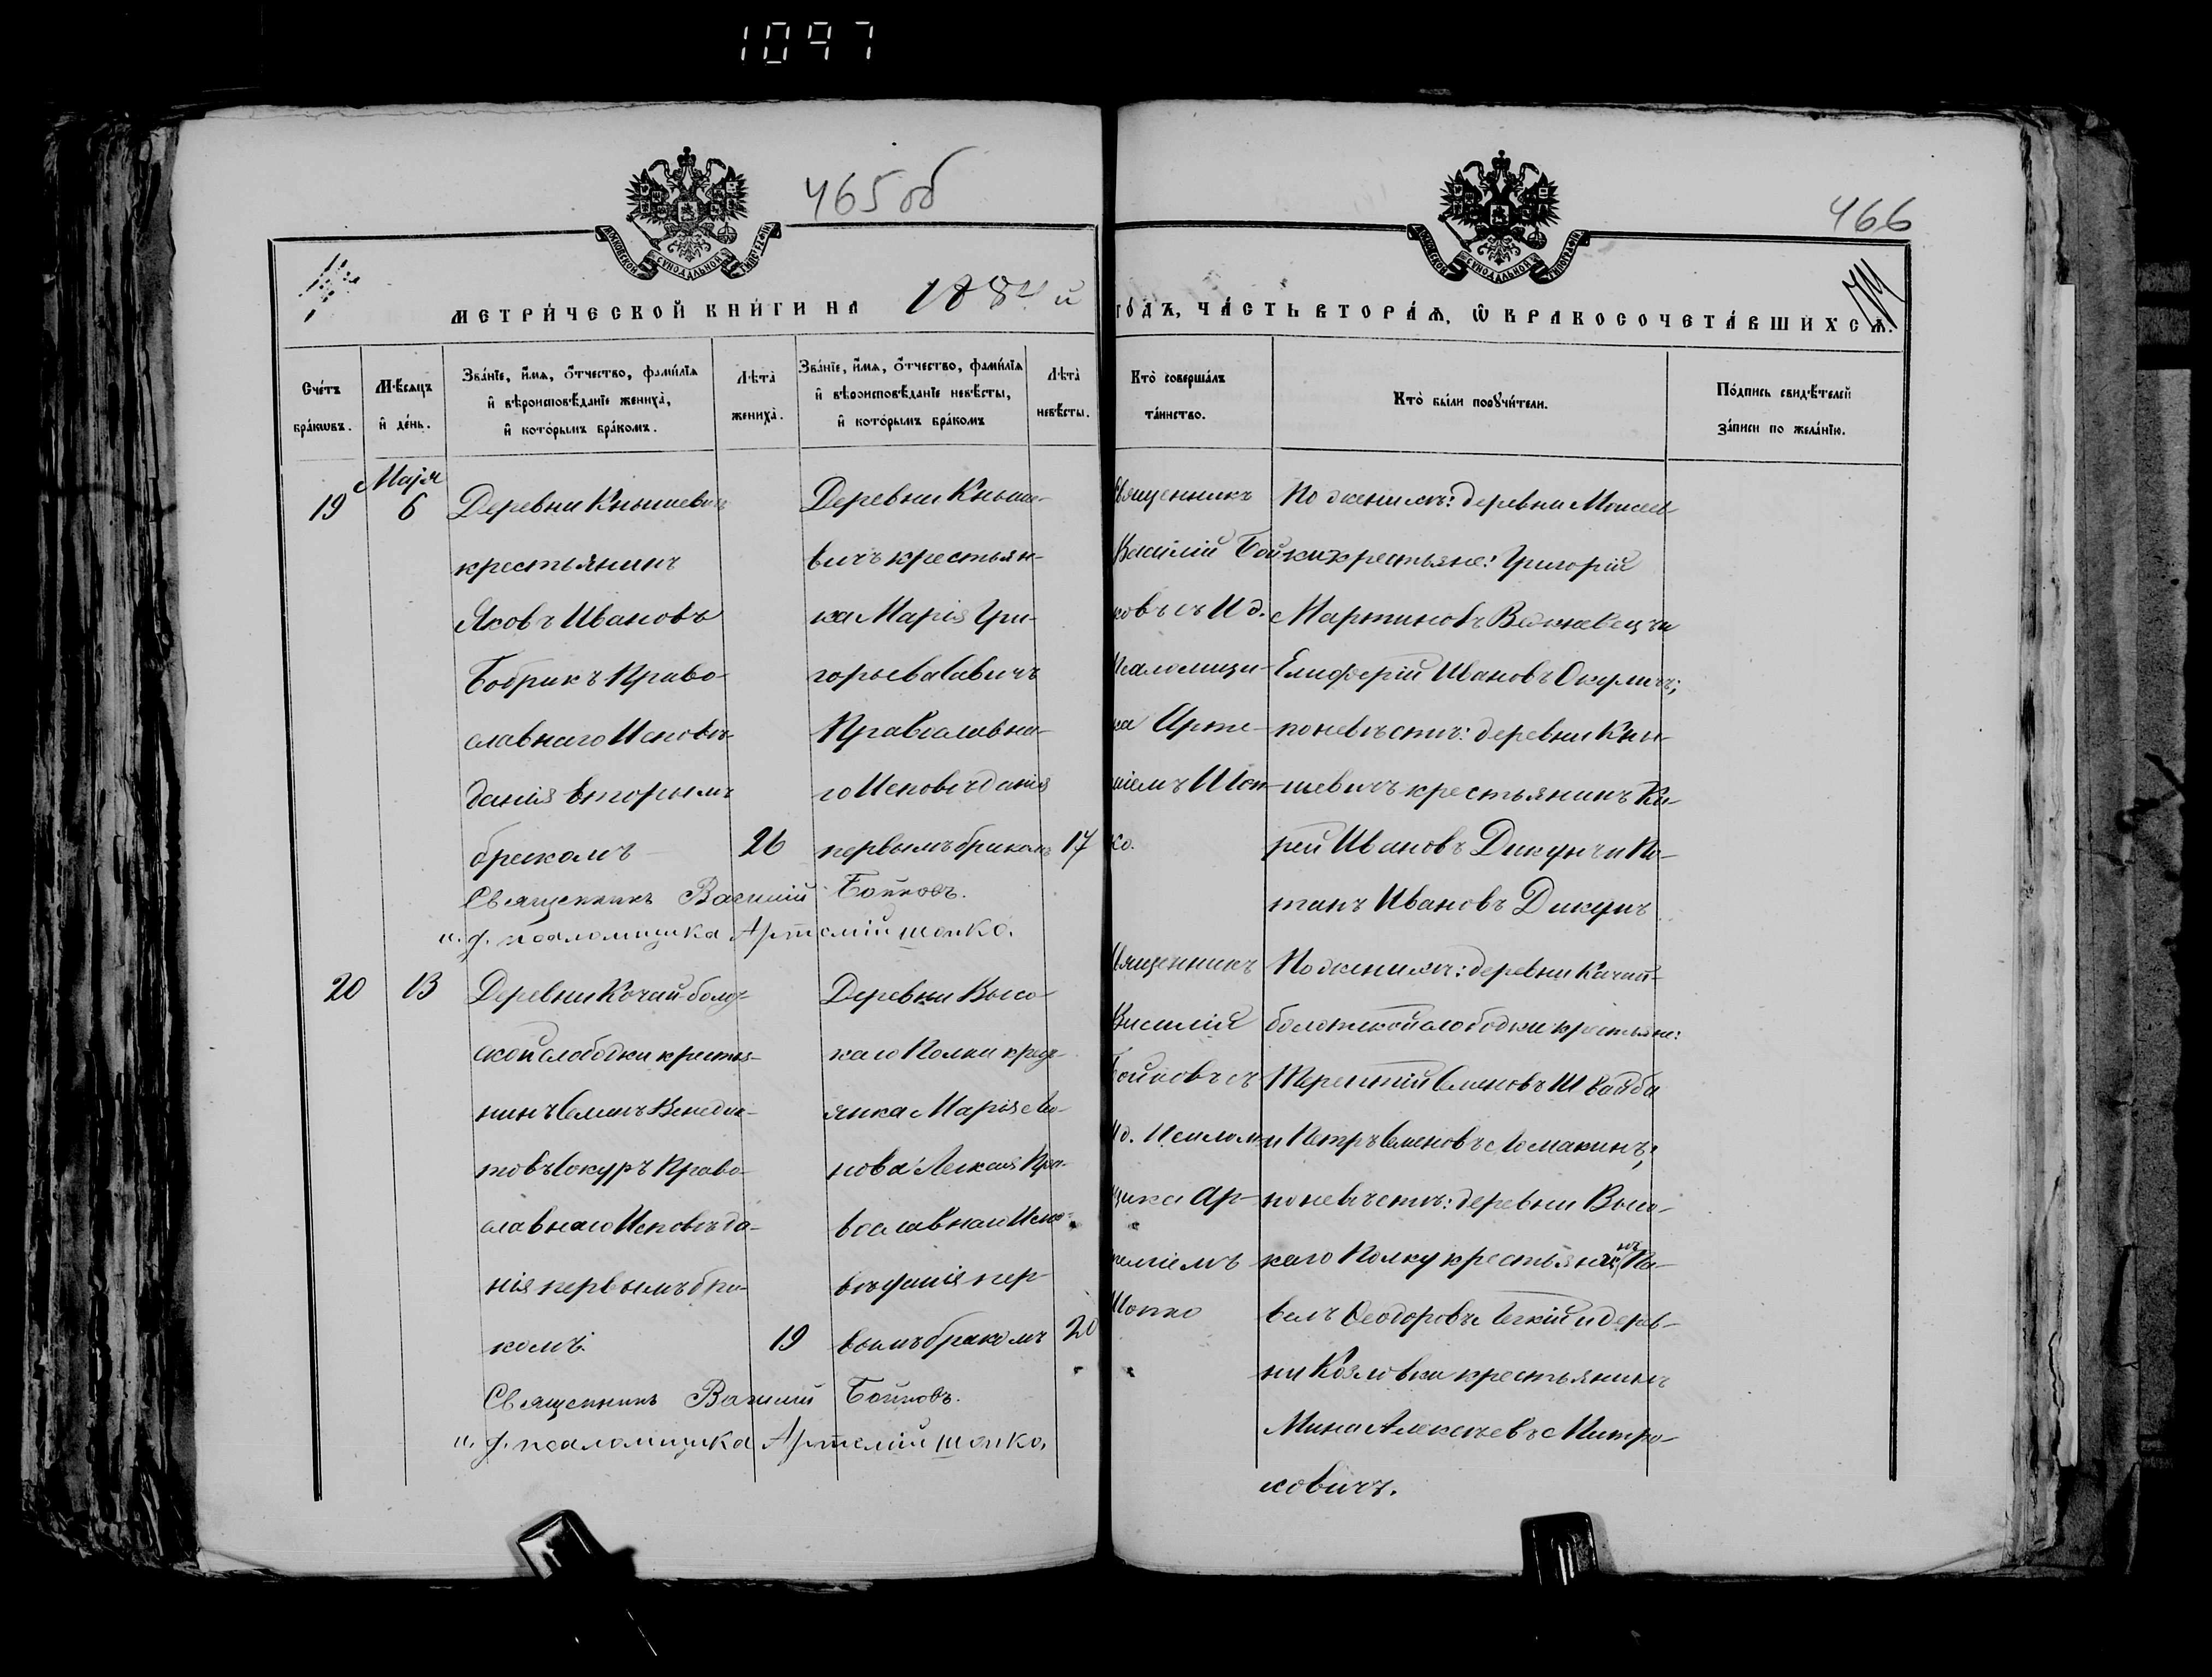 1097
465 об
466
МОСКОВСКОЙ СѴНОДАЛЬНОЙ ТИПОГРАФІИ
МОСКОВСКОЙ СѴНОДАЛЬНОЙ ТИПОГРАФІИ
МЕТРИ́ЧЕСКОЙ КНИ́ГИ НА 1884 й
ГО́ДЪ, ЧА́СТЬ ВТОРА́Ѧ, Ѽ БРАКОСОЧЕТА́ВШИХСѦ.
Сче́тъ
бра́кωвъ.
Мѣ́сяцъ
и҆ де́нь.
Зва́нїе, и҆́мѧ, ѻ҆́тчество, фами́лїѧ
и҆ вѣроисповѣ́данїе жениха̀,
и҆ кото́рымъ бра́комъ.
Лѣ́та̀
жениха̀.
Зва́нїе, и҆́мѧ, ѻ҆́тчество, фами́лїѧ
и҆ вѣроисповѣ́данїе невѣ́сты,
и҆ кото́рымъ бра́комъ
Лѣ́та̀
невѣ́сты.
Кто̀ соверша́лъ
та́инство.
Кто̀ бы́ли порꙋчи́тели.
По́дпись свидѣ́телей
за́писи по жела́нїю.
19
Маія
6
Деревни Кнышевичъ
крестьянинъ
Яковъ Ивановъ
Бобрикъ Право-
славнаго Исповѣ-
данія вторымъ
бракомъ
26
Деревни Кныше-
вичъ крестьян-
ка Марія Гри-
горьева Савичъ
Православна-
го Исповѣданія
первымъ бракомъ
17
Священникъ
Василій Бой
ковъ съ И д.
Псаломщи-
ка Арте-
міемъ Шоп-
ко.
По женихѣ: деревни Моисее-
вки крестьяне: Григорій
Мартиновъ и
Елифферій Ивановъ Окуличъ;
по невѣстѣ: деревни Кны-
шевичъ крестьянинъ Ки-
рей Ивановъ Дикунъ и По-
тапъ Ивановъ Дикунъ
Священникъ Василій Бойковъ.
и. д. псаломщика Артемій Шопко.
20
13
Деревни Кочай-болот-
ской слободки крестья-
нинъ Семенъ Венедик-
товъ Сокуръ Право-
славнаго Исповѣда-
нія первымъ бра-
комъ.
19
Деревни Высо-
каго Полка крест-
янка Марія
нова Легкая Пра-
вославнаго Испо-
вѣданія пер-
вымъ бракомъ
20
Священникъ
Василій
Бойковъ съ
И д. Псалом-
щика Ар-
теміемъ
Шопко
По женихѣ: деревни Качай-
болотской слободки крестьяне:
Терентій Семеновъ Швайба
и Петръ Семеновъ Ломакинъ;
по невѣстѣ: деревни Высо-
каго Полку крестьянинъ Па-
велъ Ѳеодоровъ Легкій и дерев-
ни Козловки крестьянинъ
Мина Алексѣевъ Митро-
ховичъ.
Священникъ Василій Бойковъ.
и. д. псаломщика Артемій Шопко.